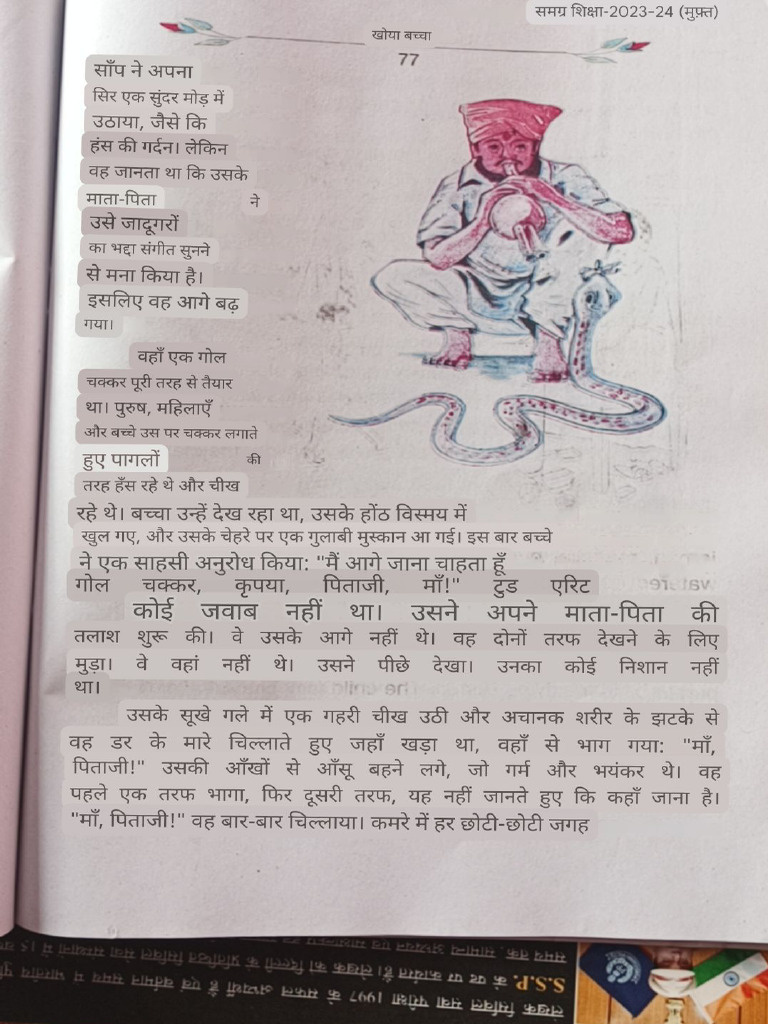 समग्र शिक्षा-2023-24 (मुफ़्त)
खोया बच्चा
77
साँप ने अपना
सिर एक सुंदर मोड़ में
उठाया, जैसे कि
हंस की गर्दन। लेकिन
वह जानता था कि उसके
माता-पिता ने
उसे जादूगरों
का भद्दा संगीत सुनने
से मना किया है।
इसलिए वह आगे बढ़
गया।
वहाँ एक गोल
चक्कर पूरी तरह से तैयार
था। पुरुष, महिलाएँ
और बच्चे उस पर चक्कर लगाते
हुए पागलों की
तरह हँस रहे थे और चीख
रहे थे। बच्चा उन्हें देख रहा था, उसके होंठ विस्मय में
खुल गए, और उसके चेहरे पर एक गुलाबी मुस्कान आ गई। इस बार बच्चे
ने एक साहसी अनुरोध किया: "मैं आगे जाना चाहता हूँ
गोल चक्कर, कृपया, पिताजी, माँ!" टुड एरिट
कोई जवाब नहीं था। उसने अपने माता-पिता की
तलाश शुरू की। वे उसके आगे नहीं थे। वह दोनों तरफ देखने के लिए
मुड़ा। वे वहां नहीं थे। उसने पीछे देखा। उनका कोई निशान नहीं
था।
उसके सूखे गले में एक गहरी चीख उठी और अचानक शरीर के झटके से
वह डर के मारे चिल्लाते हुए जहाँ खड़ा था, वहाँ से भाग गया: "माँ,
पिताजी!" उसकी आँखों से आँसू बहने लगे, जो गर्म और भयंकर थे। वह
पहले एक तरफ भागा, फिर दूसरी तरफ, यह नहीं जानते हुए कि कहाँ जाना है।
"माँ, पिताजी!" वह बार-बार चिल्लाया। कमरे में हर छोटी-छोटी जगह
S.S.P. के पद पर कार्यरत हैं।